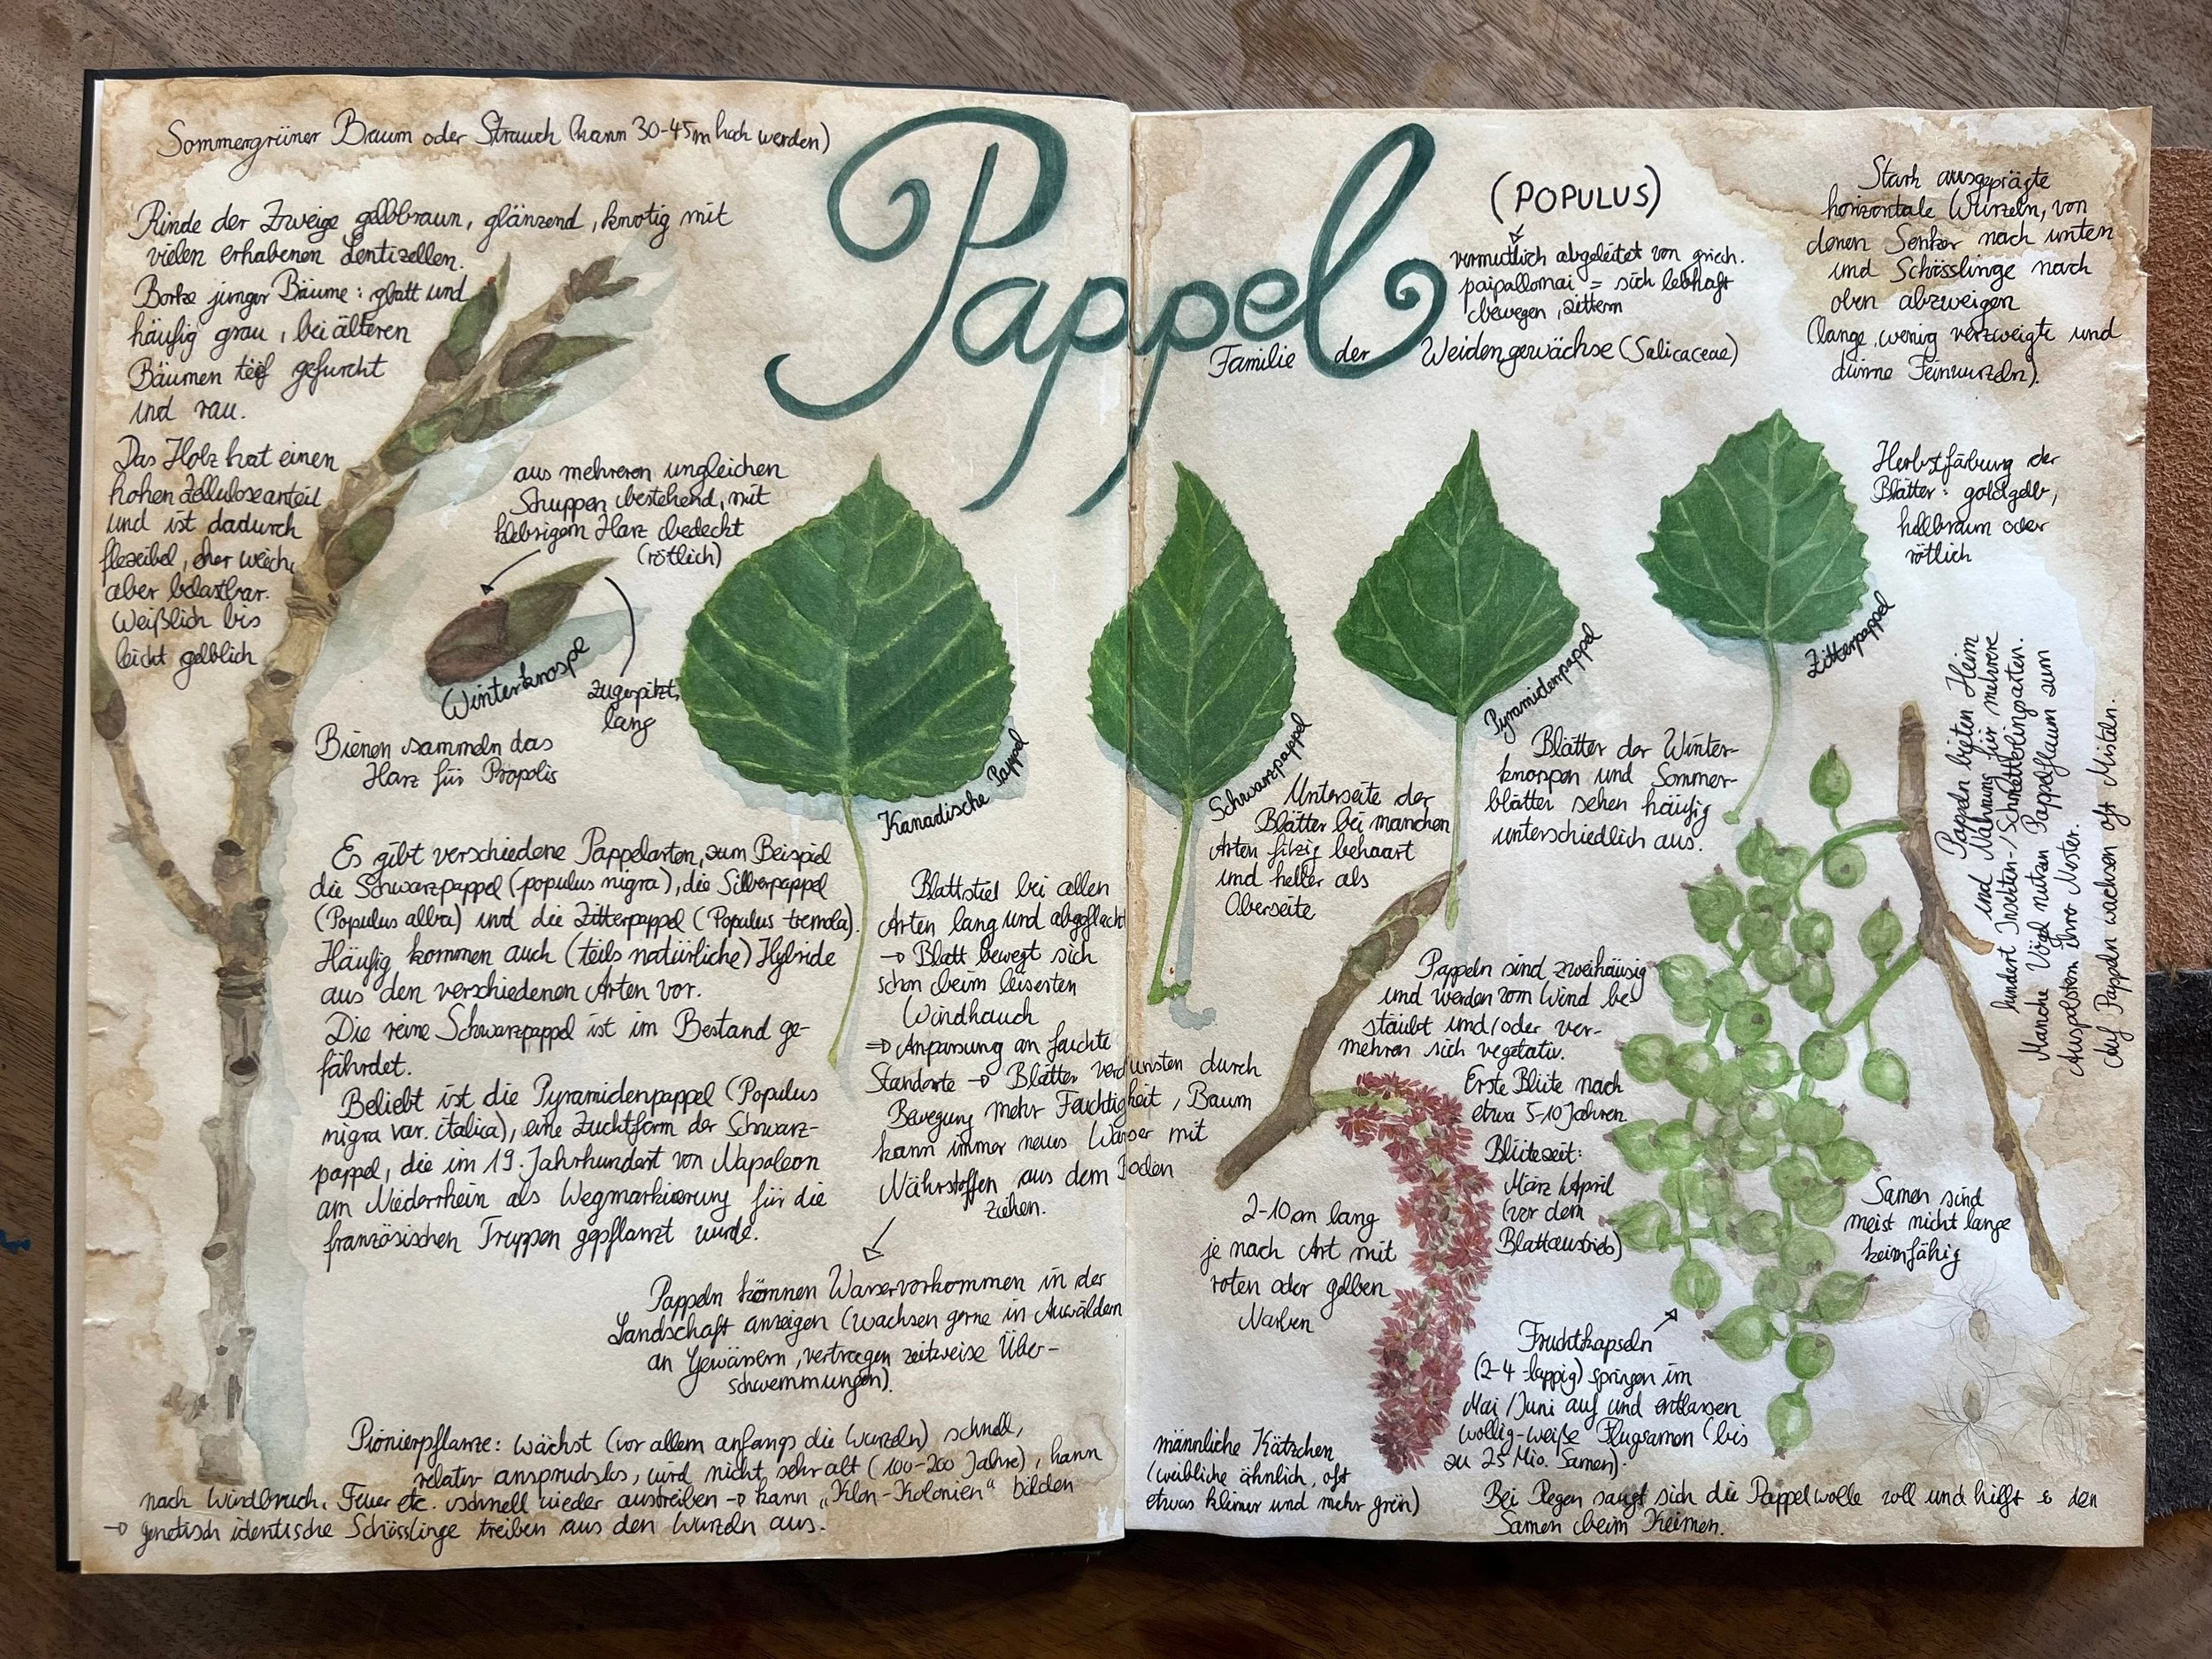 Sommergrüner Baum oder Strauch (kann 30-45m hoch werden)
Rinde der Zweige gelbbraun, glänzend, knotig mit
vielen erhabenen Lentizellen.
Borke junger Bäume: glatt und
häufig grau, bei älteren
Bäumen tief gefurcht
und rau.
Das Holz hat einen
hohen Zelluloseanteil
und ist dadurch
flexibel, eher weich,
aber belastbar.
Weißlich bis
leicht gelblich
aus mehreren ungleichen
Schuppen bestehend, mit
klebrigem Harz bedeckt
(rötlich)
Winterknospe
zugespitzt,
lang
Bienen sammeln das
Harz für Propolis
Es gibt verschiedene Pappelarten, zum Beispiel
die Schwarzpappel (populus nigra), die Silberpappel
(Populus alba) und die Zitterpappel (Populus tremola).
Häufig kommen auch (teils natürliche) Hybride
aus den verschiedenen Arten vor.
Die reine Schwarzpappel ist im Bestand ge-
fährdet.
Beliebt ist die Pyramidenpappel (Populus
nigra var. italica), eine Zuchtform der Schwarz-
pappel, die im 19. Jahrhundert von Napoleon
am Niederrhein als Wegmarkierung für die
französischen Truppen gepflanzt wurde.
Kanadische Pappel
Blattstiel bei allen
Arten lang und abgeflacht
→ Blatt bewegt sich
schon beim leisesten
Windhauch
⇒ Anpassung an feuchte
Standorte → Blätter verdunsten durch
Bewegung mehr Feuchtigkeit, Baum
kann immer neues Wasser mit
Nährstoffen aus dem Boden
ziehen.
Pappeln können Wasservorkommen in der
Landschaft anzeigen (wachsen gerne in Auwäldern
an Gewässern, vertragen zeitweise Über-
schwemmungen).
Pionierpflanze: wächst (vor allem anfangs die Wurzeln) schnell,
relativ anspruchslos, wird nicht sehr alt (100-200 Jahre), kann
nach Windbruch, Feuer etc. schnell wieder austreiben → kann „Klon-Kolonien“ bilden
→ genetisch identische Schösslinge treiben aus den Wurzeln aus.
Pappel
(POPULUS)
vermutlich abgeleitet von griech.
paipallomai = sich lebhaft
bewegen, zittern
Familie der Weidengewächse (Salicaceae)
Stark ausgeprägte
horizontale Wurzeln, von
denen Senker nach unten
und Schösslinge nach
oben abzweigen
(lange, wenig verzweigte und
dünne Feinwurzeln).
Herbstfärbung der
Blätter: goldgelb,
hellbraun oder
rötlich
Schwarzpappel
Pyramidenpappel
Zitterpappel
Unterseite der
Blätter bei manchen
Arten filzig behaart
und heller als
Oberseite
Blätter der Winter-
knospen und Sommer-
blätter sehen häufig
unterschiedlich aus.
Pappeln bieten Heim
und Nahrung für mehrere
hundert Insekten-/Schmetterlingsarten.
Manche Vögel nutzen Pappelflaum zum
Auspolstern ihrer Nester.
Auf Pappeln wachsen oft Misteln.
Pappeln sind zweihäusig
und werden vom Wind be-
stäubt und/oder ver-
mehren sich vegetativ.
Erste Blüte nach
etwa 5-10 Jahren.
Blütezeit:
März/April
(vor dem
Blattaustrieb)
2-10cm lang
je nach Art mit
roten oder gelben
Narben
männliche Kätzchen
(weibliche ähnlich, oft
etwas kleiner und mehr grün)
Samen sind
meist nicht lange
keimfähig
Fruchtkapseln
(2-4-lappig) springen im
Mai/Juni auf und entlassen
wollig-weiße Flugsamen (bis
zu 25 Mio. Samen).
Bei Regen saugt sich die Pappelwolle voll und hilft so den
Samen beim Keimen.